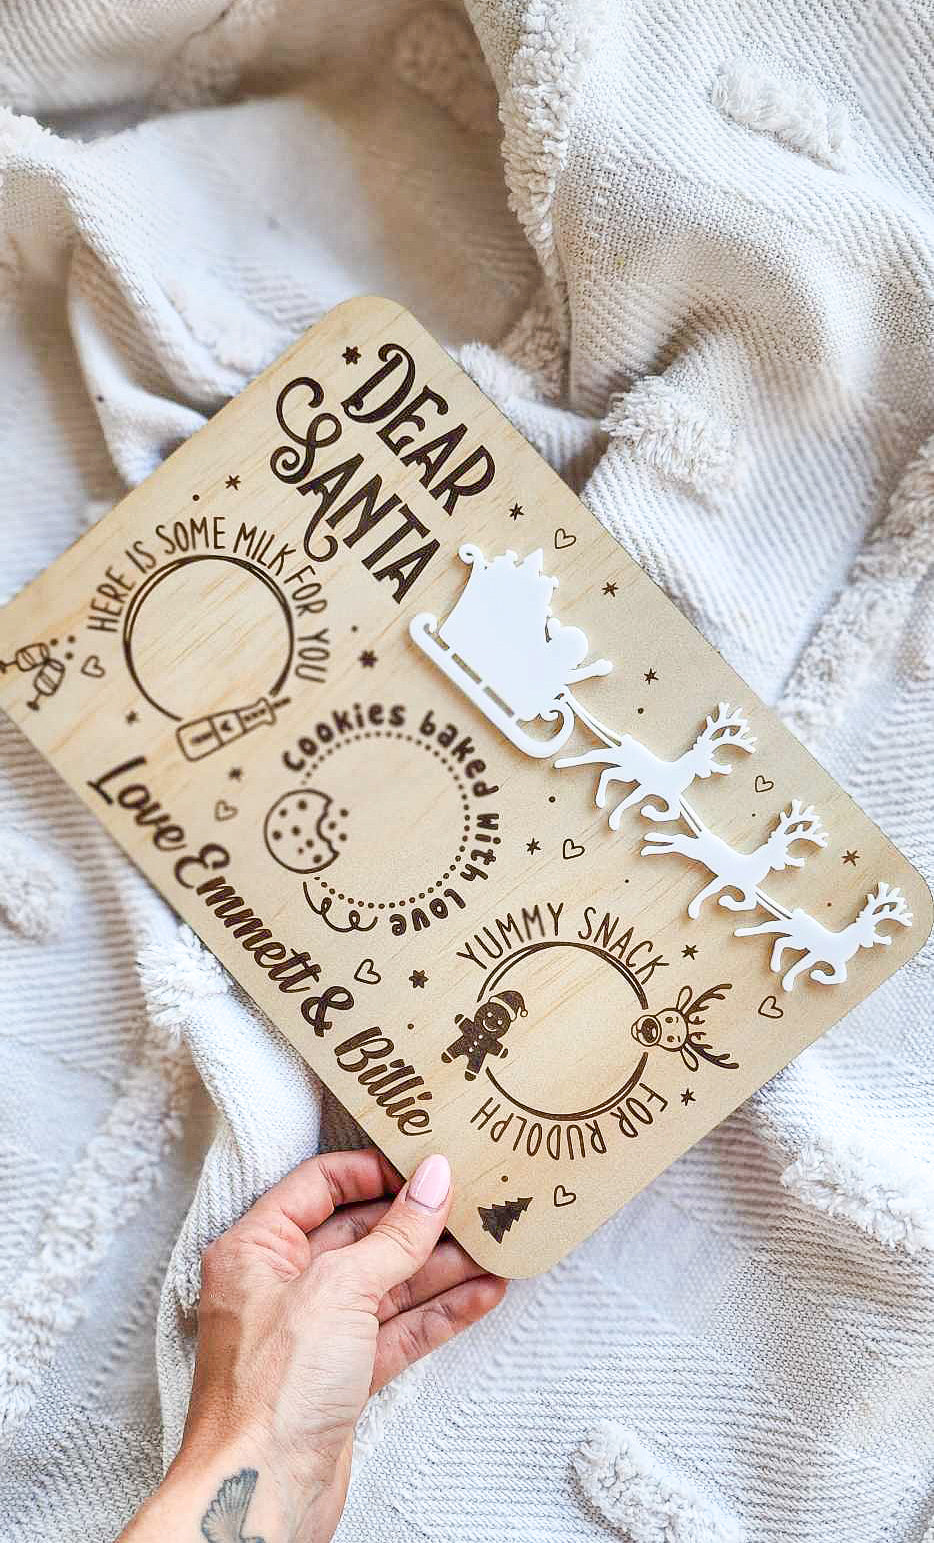 DEAR
SANTA
HERE IS SOME MILK FOR YOU
cookies baked with love
YUMMY SNACK
FOR RUDOLPH
Love Emmett & Billie